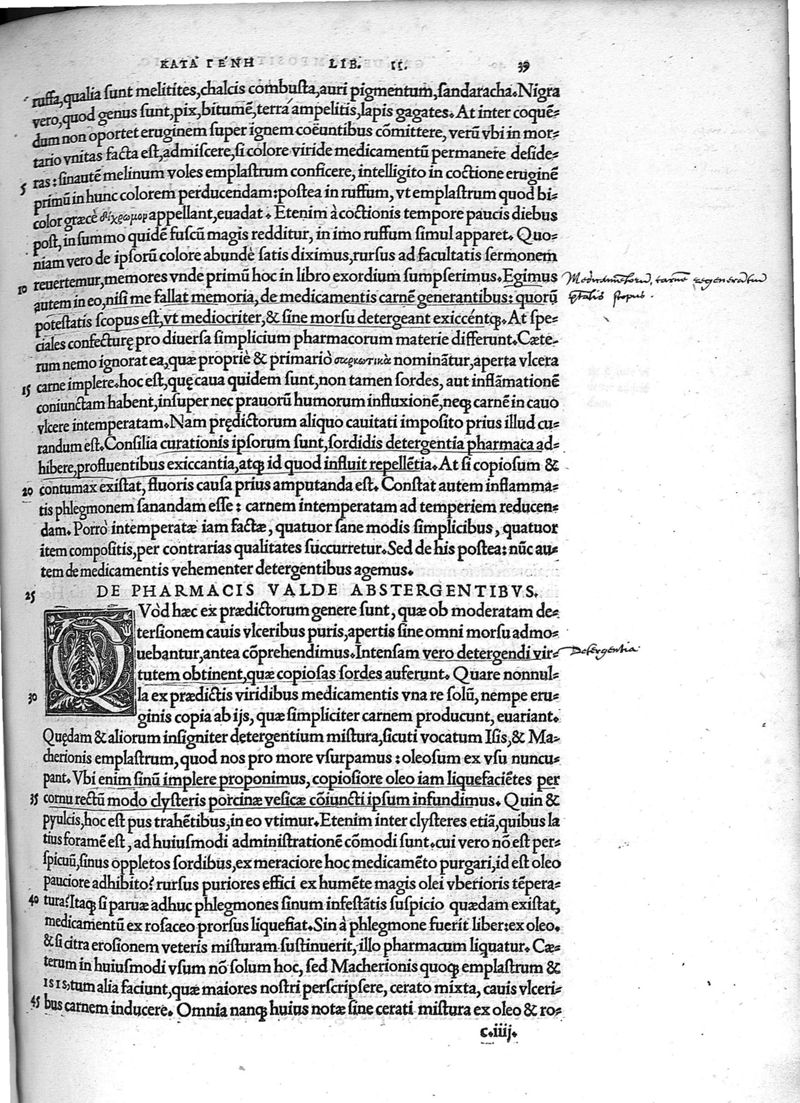 ΚΑΤΑ ΓΕΝΗ LIB. II. 39
ruffa, qualia sunt melitites, chalcis combusta, auri pigmentum, sandaracha. Nigra
vero, quod genus sunt, pix, bitumē, terra ampelitis, lapis gagates. At inter coquē=
dum non oportet eruginem super ignem coëuntibus cōmittere, verū vbi in mor=
tario vnitas facta est, admiscere, si colore viride medicamentū permanere deside=
5 ras: sinautē melinum voles emplastrum conficere, intelligito in coctione eruginē
primū in hunc colorem perducendam: postea in ruffum, vt emplastrum quod bi=
color græcè δίχρωμον appellant, euadat. Etenim à coctionis tempore paucis diebus
post, in summo quidē fuscū magis redditur, in imo ruffum simul apparet. Quo=
niam vero de ipsorū colore abundè satis diximus, rursus ad facultatis sermonem
10 reuertemur, memores vnde primū hoc in libro exordium sumpserimus. Egimus
autem in eo, nisi me fallat memoria, de medicamentis carnē generantibus: quorū
potestatis scopus est, vt mediocriter, & sine morsu detergeant exiccēntq́;. At spe=
ciales confecturę pro diuersa simplicium pharmacorum materie differunt. Cæte=
rum nemo ignorat ea, quæ propriè & primario σαρκωτικὰ nominātur, aperta vlcera
15 carne implere. hoc est, quę caua quidem sunt, non tamen sordes, aut inflāmationē
coniunctam habent, insuper nec prauorū humorum influxionē, neq; carnē in cauo
vlcere intemperatam. Nam prędictorum aliquo cauitati imposito prius illud cu=
randum est. Consilia curationis ipsorum sunt, sordidis detergentia pharmaca ad=
hibere, profluentibus exiccantia, atq; id quod influit repellētia. At si copiosum &
20 contumax existat, fluoris causa prius amputanda est. Constat autem inflamma=
tis phlegmonem sanandam esse: carnem intemperatam ad temperiem reducen=
dam. Porrò intemperatæ iam factæ, quatuor sane modis simplicibus, quatuor
item compositis, per contrarias qualitates succurretur. Sed de his postea: nūc au=
tem de medicamentis vehementer detergentibus agemus.
25 DE PHARMACIS VALDE ABSTERGENTIBVS.
QVòd hæc ex prædictorum genere sunt, quæ ob moderatam de=
tersionem cauis vlceribus puris, apertis sine omni morsu admo=
uebantur, antea cōprehendimus. Intensam vero detergendi vir=
tutem obtinent, quæ copiosas sordes auferunt. Quare nonnul=
30 la ex prædictis viridibus medicamentis vna re solū, nempe eru=
ginis copia ab ijs, quæ simpliciter carnem producunt, euariant.
Quędam & aliorum insigniter detergentium mistura, sicuti vocatum Isis, & Ma=
cherionis emplastrum, quod nos pro more vsurpamus: oleosum ex vsu nuncu=
pant. Vbi enim sinū implere proponimus, copiosiore oleo iam liquefaciētes per
35 cornu rectū modo clysteris porcinæ vesicæ cōiuncti ipsum infundimus. Quin &
pyulcis, hoc est pus trahētibus, in eo vtimur. Etenim inter clysteres etiā, quibus la
tius foramē est, ad huiusmodi administrationē cōmodi sunt. cui vero nō est per=
spicuū, sinus oppletos sordibus, ex meraciore hoc medicamēto purgari, id est oleo
pauciore adhibito? rursus puriores effici ex humēte magis olei vberioris tēpera=
40 tura? Itaq; si paruæ adhuc phlegmones sinum infestātis suspicio quædam existat,
medicamentū ex rosaceo prorsus liquefiat. Sin à phlegmone fuerit liber: ex oleo.
& si citra erosionem veteris misturam sustinuerit, illo pharmacum liquatur. Cæ=
terum in huiusmodi vsum nō solum hoc, sed Macherionis quoq; emplastrum &
ISIS, tum alia faciunt, quæ maiores nostri perscripsere, cerato mixta, cauis vlceri=
45 bus carnem inducere. Omnia nanq; huius notæ sine cerati mistura ex oleo & ro=
c.iij.
Medicamentorū, carnē regenerantiū
scopus.
Detergentia